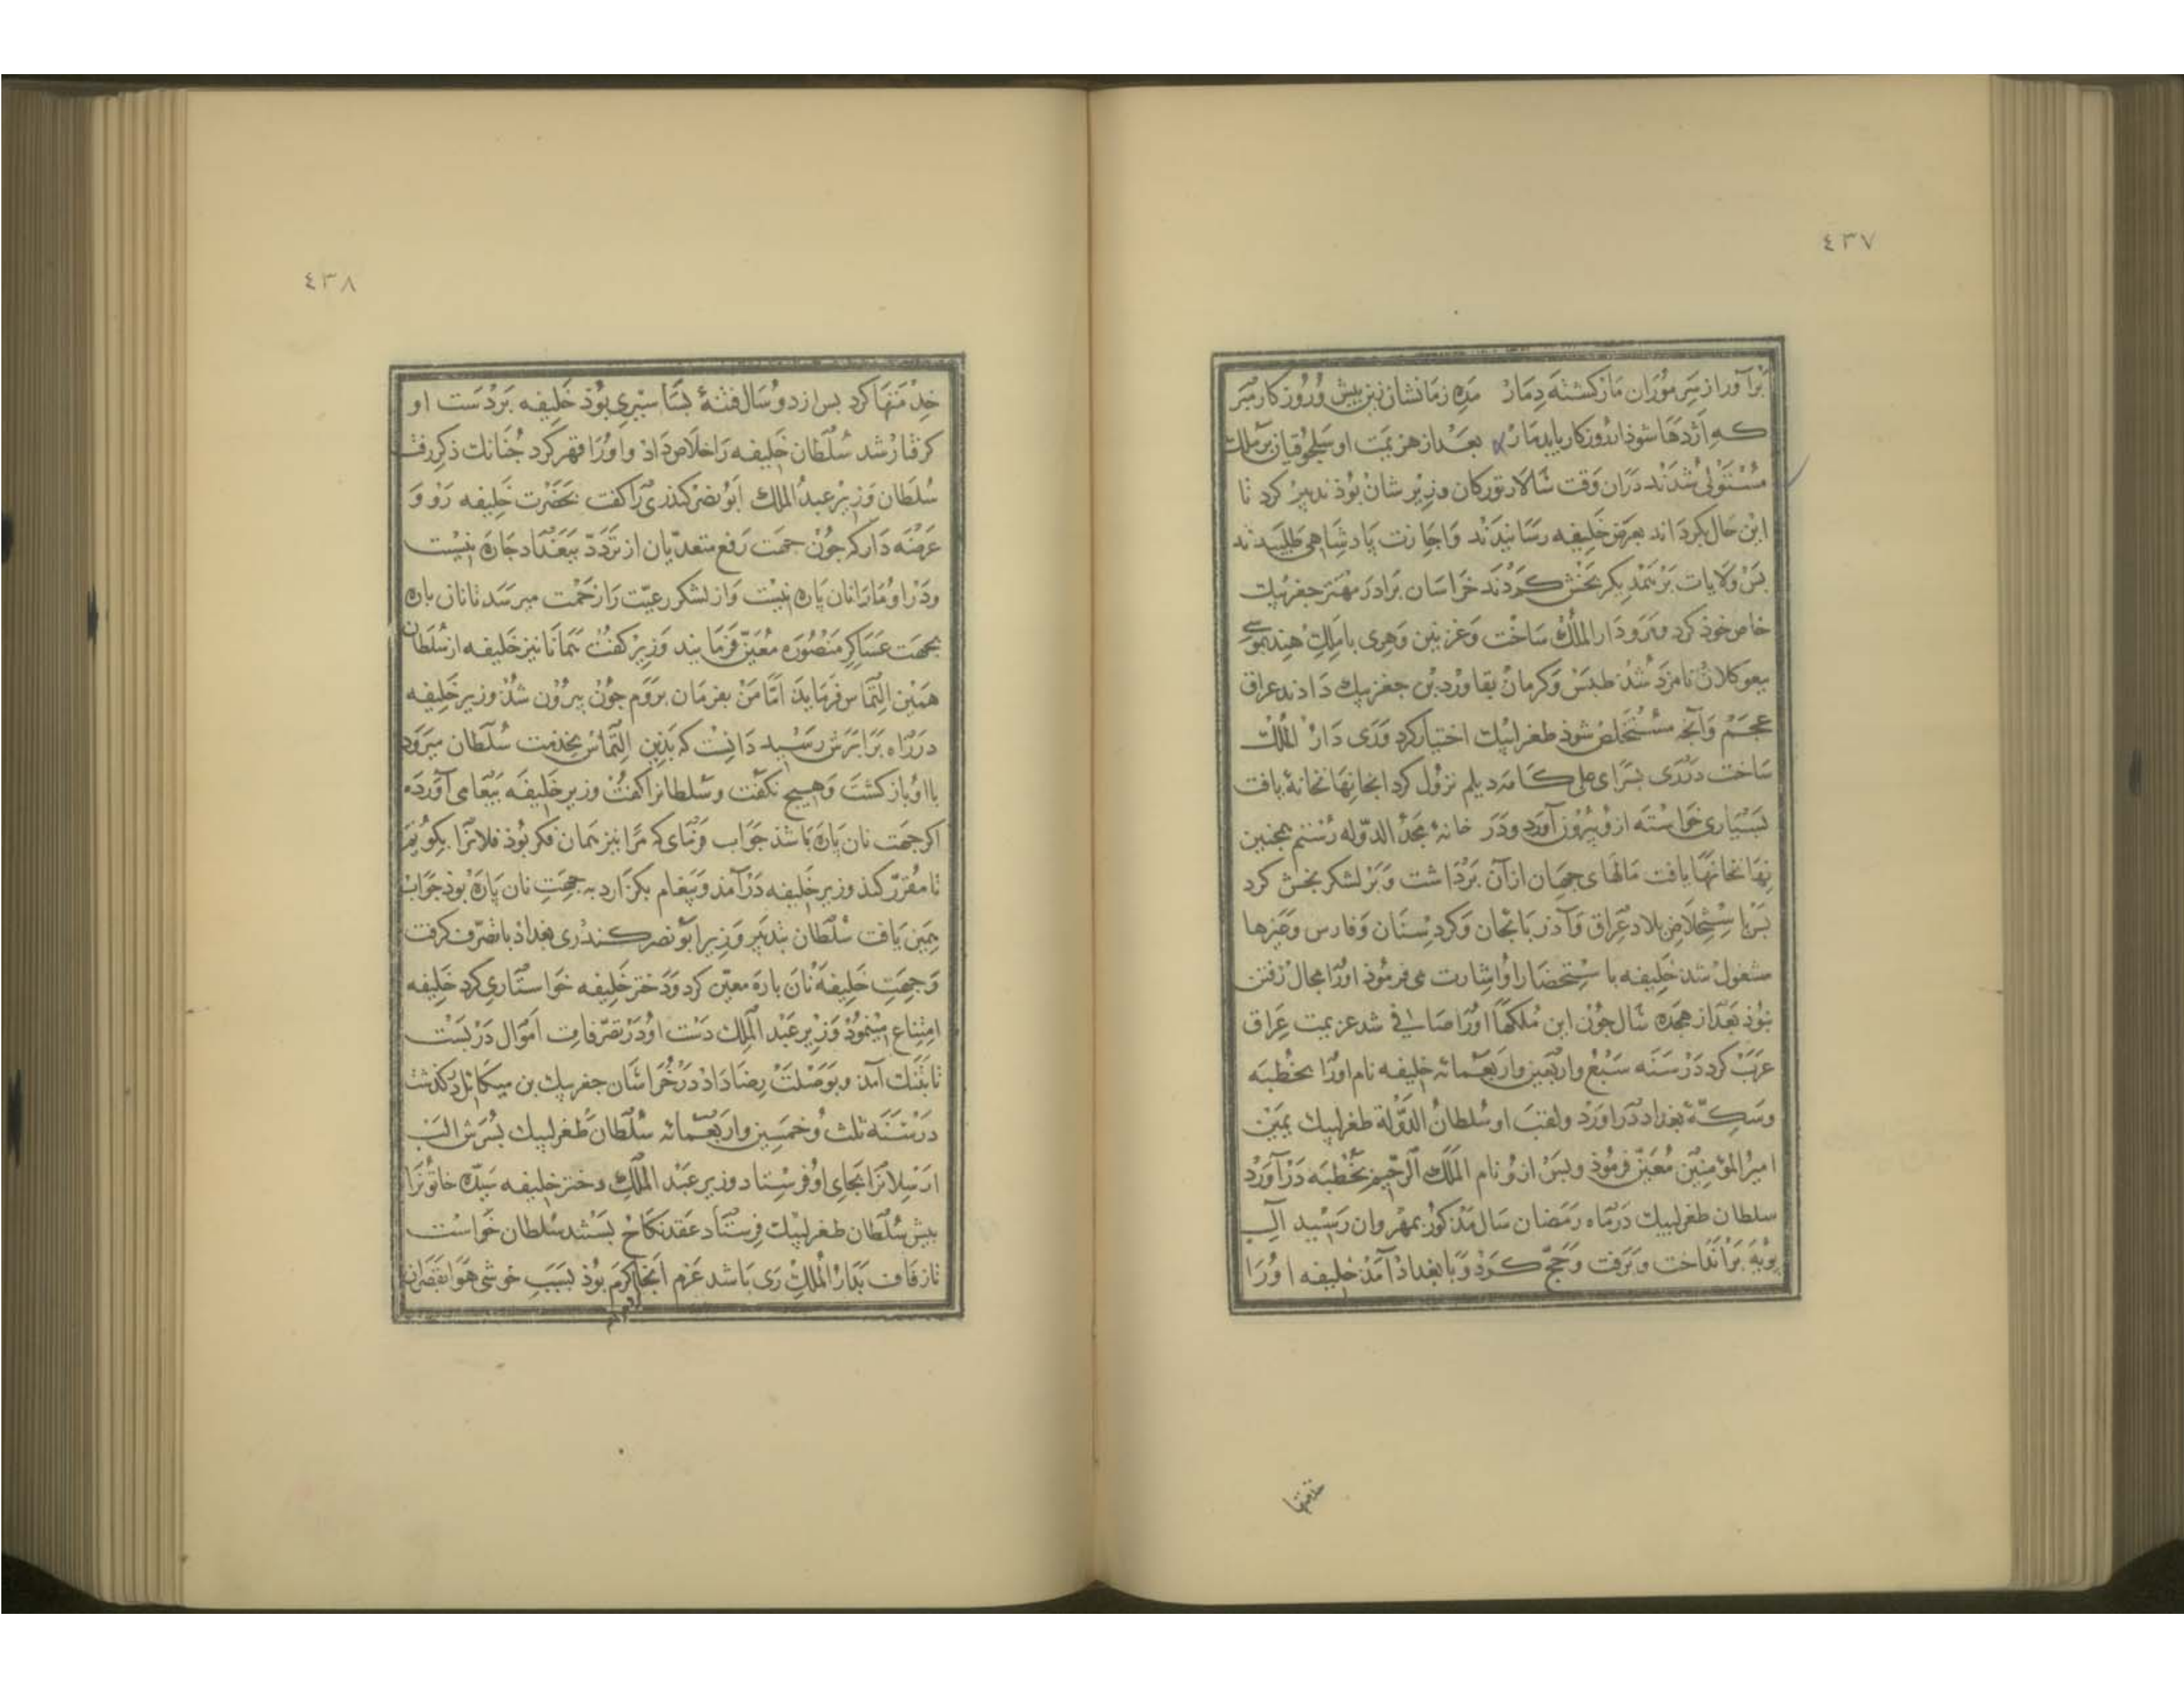 ٤٣٧
برآور از سر موران مار كشته دمار مده زمانشان زین بیش و روزكار مبر
كه اژدها شوذ ار روزكار یابد مار بعد از هزیمت او سلجوقیان بر ملك
مستولی شدند دران وقت سالار توركان وزیر شان بوذ تدبیر كرد تا
این حال كرد اند بعرض خلیفه رسانیدند و اجازت پادشاهی طلبیدند
بس ولایات بر یمدیكر بخش كردند خراسان برادر مهتر جغربیك
خاص خوذ كرد و مرو دار الملك ساخت و غزنین و هری با ملك هند بموسی
یبغو كلان نامزد شد طبس و كرمان بقاورد بن جغربیك دادند عراق
عجم و آنچه مستخلص شوذ طغرلبیك اختیار كرد و ری دار الملك
ساخت در ری بسرای علی كامه دیلم نزول كرد انجا نهانخانهٔ یافت
بسیاری خواسته ازو بیروز آورد و در خانهٔ مجد الدوله رستم همجنین
نهانخانها یافت مالهای جهان ازان برداشت و بر لشكر بخش كرد
بس با ستخلاص بلاد عراق و آذربایجان و كردستان و فارس و غیرها
مشغول شد خلیفه با ستحضار او اشارت می فرموذ اورا مجال رفتن
نبوذ بعد از هجده سال جون این ملكها اورا صافی شد عزیمت عراق
عرب كرد در سنه سبع و اربعین و اربعمائه خلیفه نام اورا بخطبه
و سكهٔ بغداد در اورد و لقب او سلطان الدولة طغرلبیك یمین
امیر المؤمنین معین فرموذ و بس ازو نام الملك الرحیم بخطبه در آورد
سلطان طغرلبیك در ماه رمضان سال مذكور بنهروان رسید آل
بویه برانداخت و برفت و حج كرد و با بغداد آمد خلیفه اورا
خدمتها
٤٣٨
خدمتها كرد بس از دو سال فتنهٔ بساسیری بوذ خلیفه بر دست او
كرفتار شد سلطان خلیفه را خلاص داد و اورا قهر كرد جنانك ذكر رفت
سلطان وزیر عبد الملك ابو نصر كندری را كفت بحضرت خلیفه رو و
عرضه دار كه جون جهت رفع متعدیان از تردد ببغداد جاره نیست
و در او مارا نان پاره نیست و از لشكر رعیت را زحمت میرسد تا نان پاره
بجهت عساكر منصوره معین فرمایند وزیر كفت همانا نیز خلیفه از سلطان
همین التماس فرماید اما من بفرمان بروم جون بیرون شد وزیر خلیفه
در راه برابرش رسید دانست كه بذین التماس بخدمت سلطان میرود
با او باز كشت و هیچ نكفت و سلطانرا كفت وزیر خلیفه بیغامی آورده
اكر جهت نان پاره باشد جواب فرمای كه مرا نیز همان فكر بوذ فلانرا بكویم
تا مقرر كند وزیر خلیفه در آمد و پیغام بكزارد به جهت نان پاره بوذ جواب
همین یافت سلطان بتدبیر وزیر ابو نصر كندری بغداد با تصرف كرفت
و جهت خلیفه نان پاره معین كرد و دختر خلیفه خواستاری كرد خلیفه
امتناع مینمود وزیر عبد الملك دست او در تصرفات اموال در بست
تا بتنك آمد و بوصلت رضا داد در خراسان جغربیك بن میكائیل در كذشت
در سنه ثلث و خمسین و اربعمائه سلطان طغرلبیك بسرش الب
ارسلانرا بجای او فرستاد و زیر عبد الملك دختر خلیفه سیده خاتونرا
بیش سلطان طغرلبیك فرستاد عقد نكاح بستند سلطان خواست
تا زفاف بدار الملك ری باشد عزم انجا كرد كرم بوذ بسبب خوشی هوا بقصران